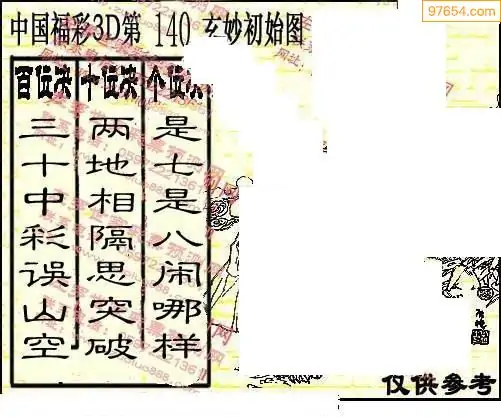 97654.com
中国福彩3D第 140 玄妙初始图
百位决 十位决 个位决
三十中彩误山空
两地相隔思突破
是七是八闹哪样
仅供参考